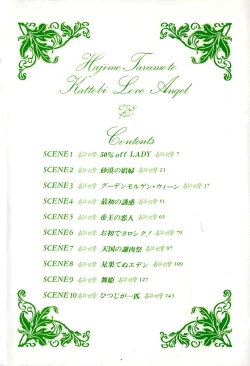 Hajime Turumoto
Kattobi Love Angel
Contents
SCENE1 50% off LADY 7
SCENE2 砂漠の娼婦 23
SCENE3 グーテンモルゲン・ウィーン 37
SCENE4 最初の誘惑 51
SCENE5 帝王の恋人 65
SCENE6 お初でヨロシク! 79
SCENE7 天国の謝肉祭 97
SCENE8 見果てぬエデン 109
SCENE9 舞姫 127
SCENE10 ひつじが一匹 143